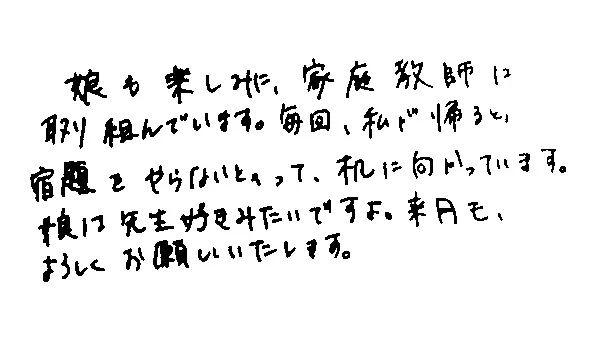 娘も楽しみに、家庭教師に
取り組んでいます。毎回、私が帰ると、
宿題をやらないとって、机に向かっています。
娘は先生好きみたいですよ。来月も、
よろしくお願いいたします。